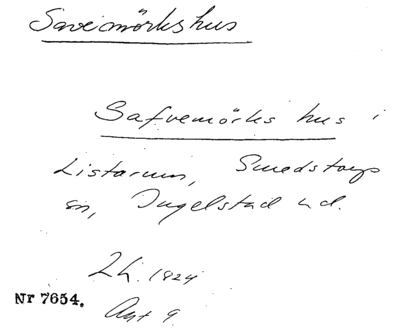 Savemörkshus
Safvemörks hus i
Listarum, Smedstorps
sn, Ingelstad hd.
Lh. 1824
Nr 7654.
Akt 9